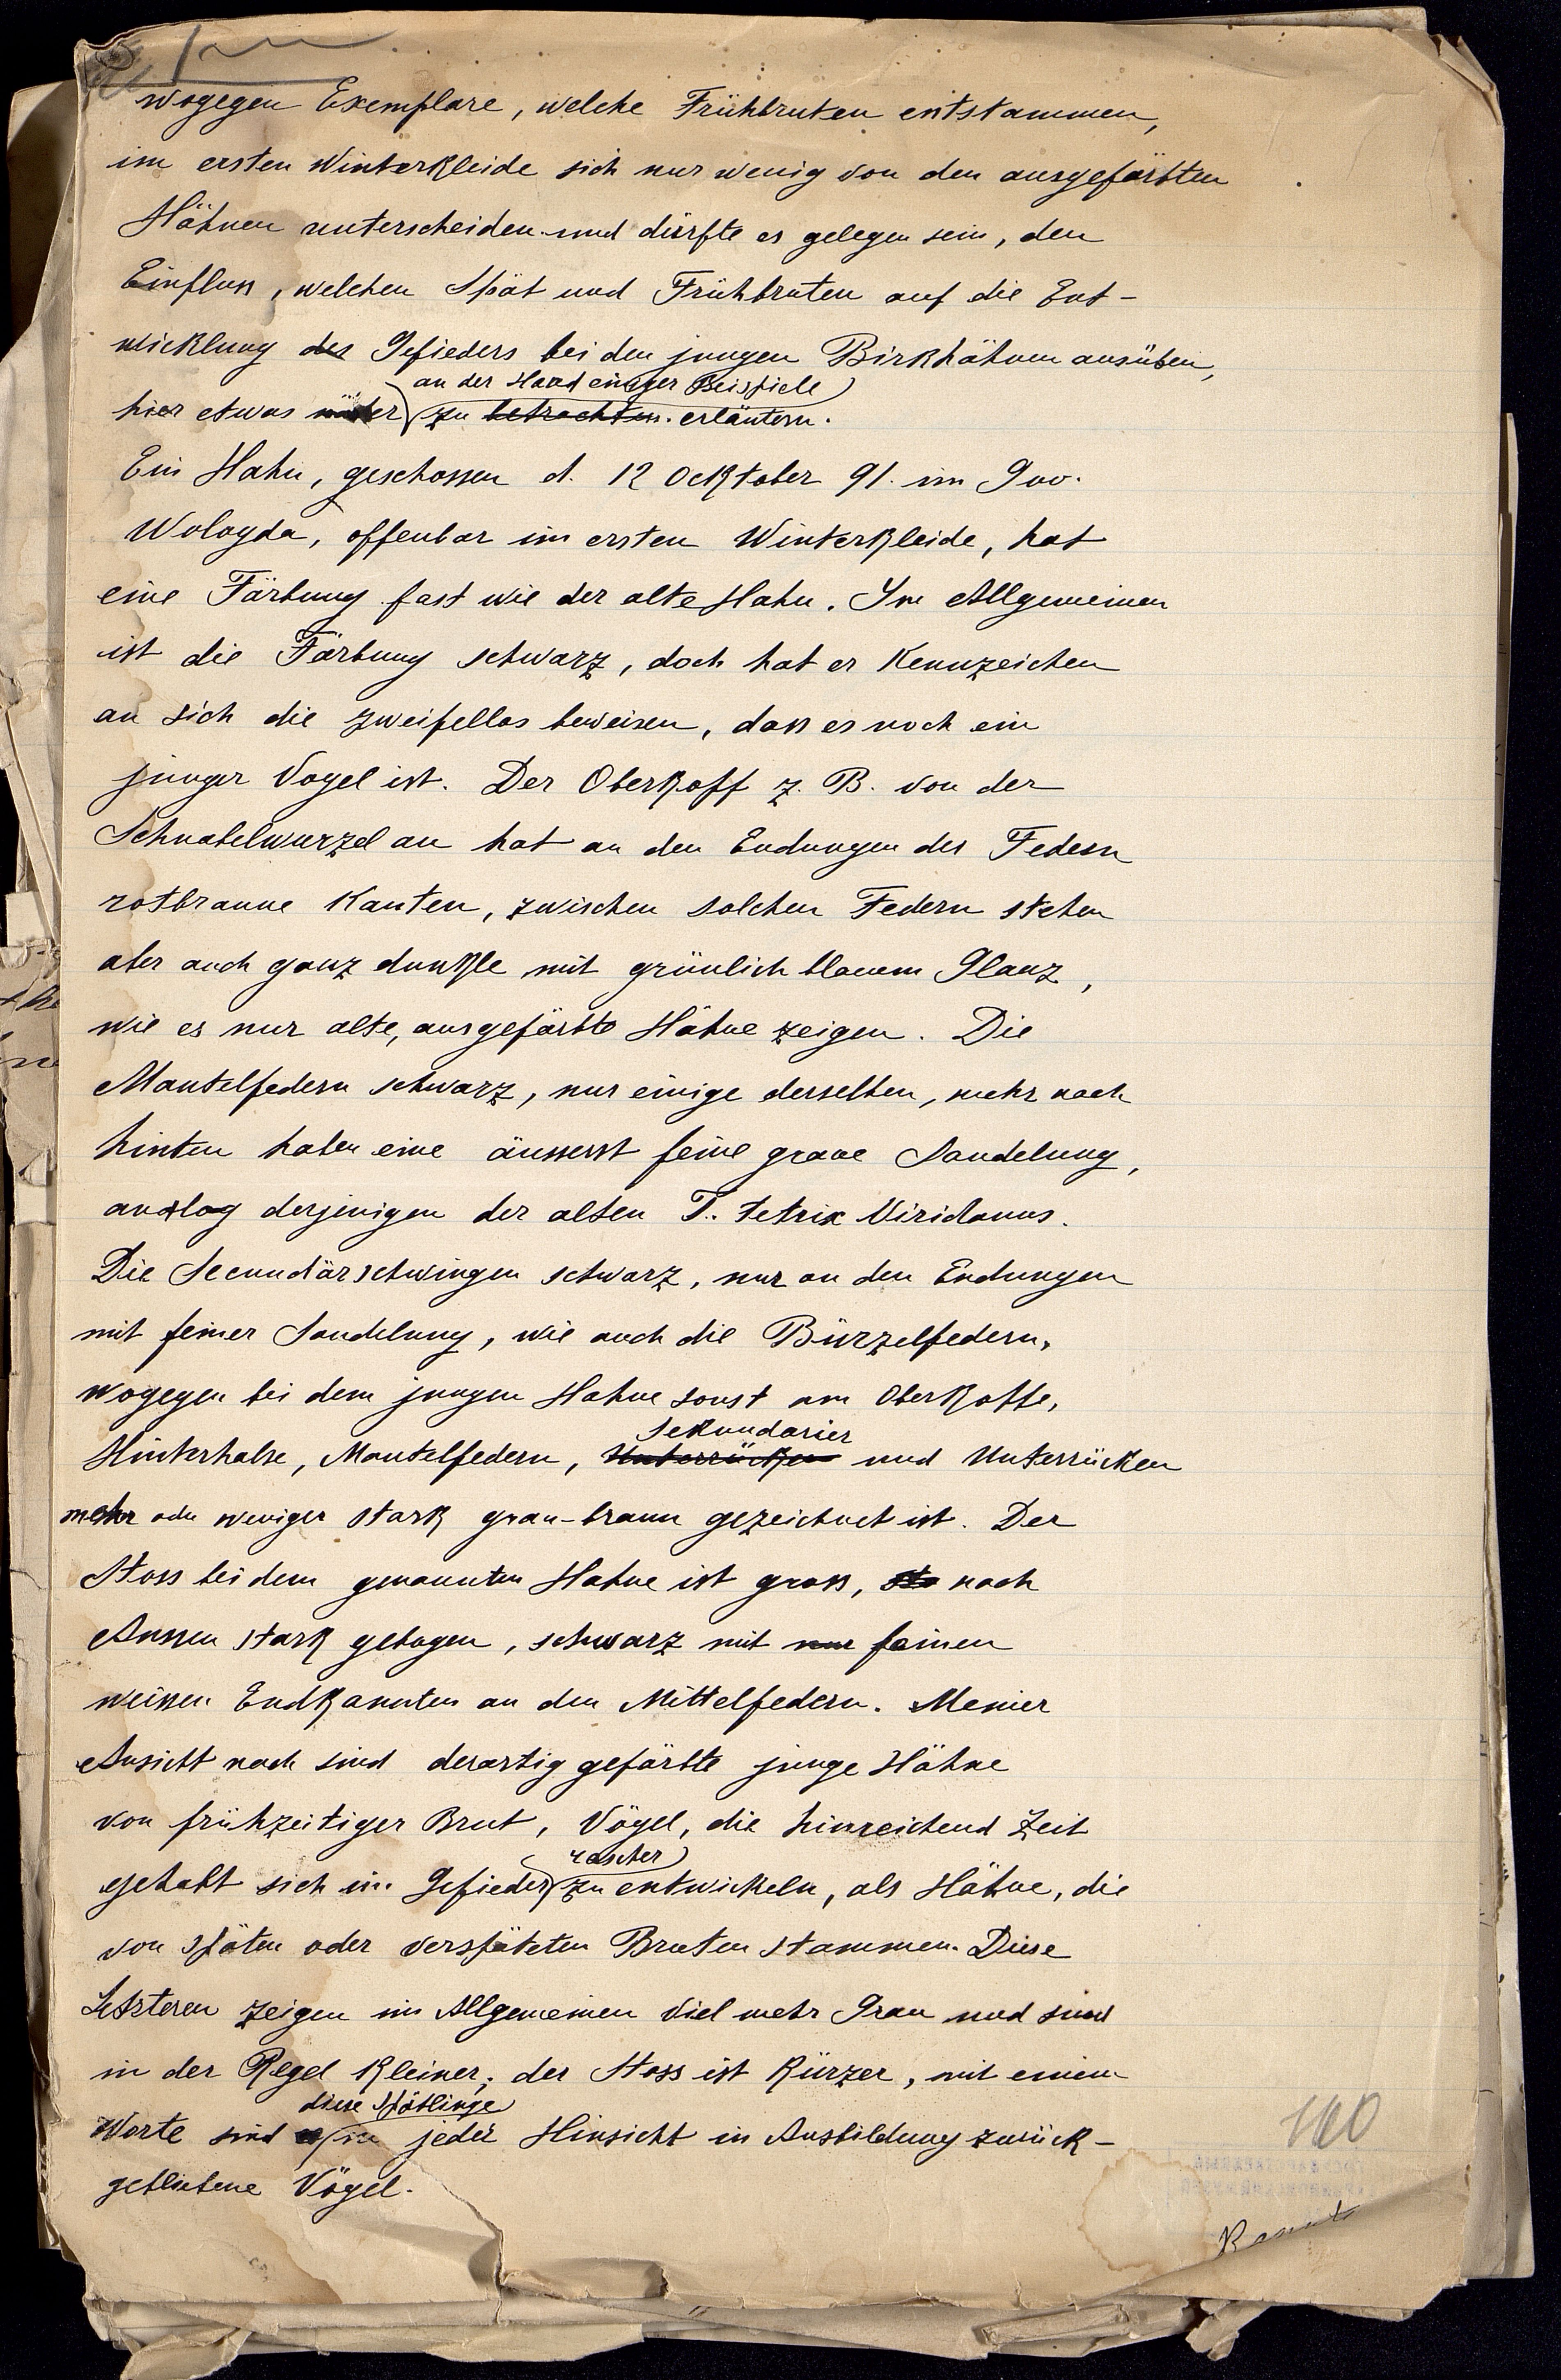 wogegen Exemplare, welche Frühbruten entstammen,
im ersten Winterkleide sich nur wenig von den ausgefärbten
Hähnen unterscheiden und dürfte es gelegen sein, den
Einfluss, welchen Spät und Frühbruten auf die Ent-
wicklung des Gefieders bei den jungen Birkhähnen ausüben,
an der Hand einiger Beispiele
hier etwas zu betrachten. erläutern.
Ein Hahn, geschossen d. 12 Ocktober 91. im Gov.
Wologda, offenbar im ersten Winterkleide, hat
eine Färbung fast wie der alte Hahn. Im Allgemeinen
ist die Färbung schwarz, doch hat er Kennzeichen
an sich die zweifellos beweisen, dass es noch ein
junger Vogel ist. Der Oberkopf z. B. von der
Schnabelwurzel an hat an den Endungen der Federn
rotbraune Kanten, zwischen solchen Federn stehen
aber auch ganz dunkle mit grünlich blauem Glanz,
wie es nur alte, ausgefärbte Hähne zeigen. Die
Mantelfedern schwarz, nur einige derselben, mehr nach
hinten haben eine äusserst feine graue Sandelung,
analog derjenigen der alten T. tetrix Viridanus.
Die Secundärschwingen schwarz, nur an den Endungen
mit feiner Sandelung, wie auch die Bürzelfedern,
wogegen bei dem jungen Hahne sonst am Oberkopfe,
Sekundarier
Hinterhalse, Mantelfedern, Unterrücken und Unterrücken
mehr oder weniger stark grau-braun gezeichnet ist. Der
Stoss bei dem genannten Hahne ist gross, sta nach
Aussen stark gebogen, schwarz mit nur feinen
weissen Endkannten an den Mittelfedern. Meiner
Ansicht nach sind derartig gefärbte junge Hähne
von frühzeitiger Brut, Vögel, die hinreichend Zeit
rascher
gehabt sich im Gefieder zu entwickeln, als Hähne, die
von späten oder verspäteten Bruten stammen. Diese
Letzteren zeigen im Allgemeinen viel mehr Grau und sind
in der Regel kleiner; der Stoss ist kürzer, mit einem
diese Spätlinge
Worte sind in jeder Hinsicht in Ausbildung zurück-
gebliebene Vögel.